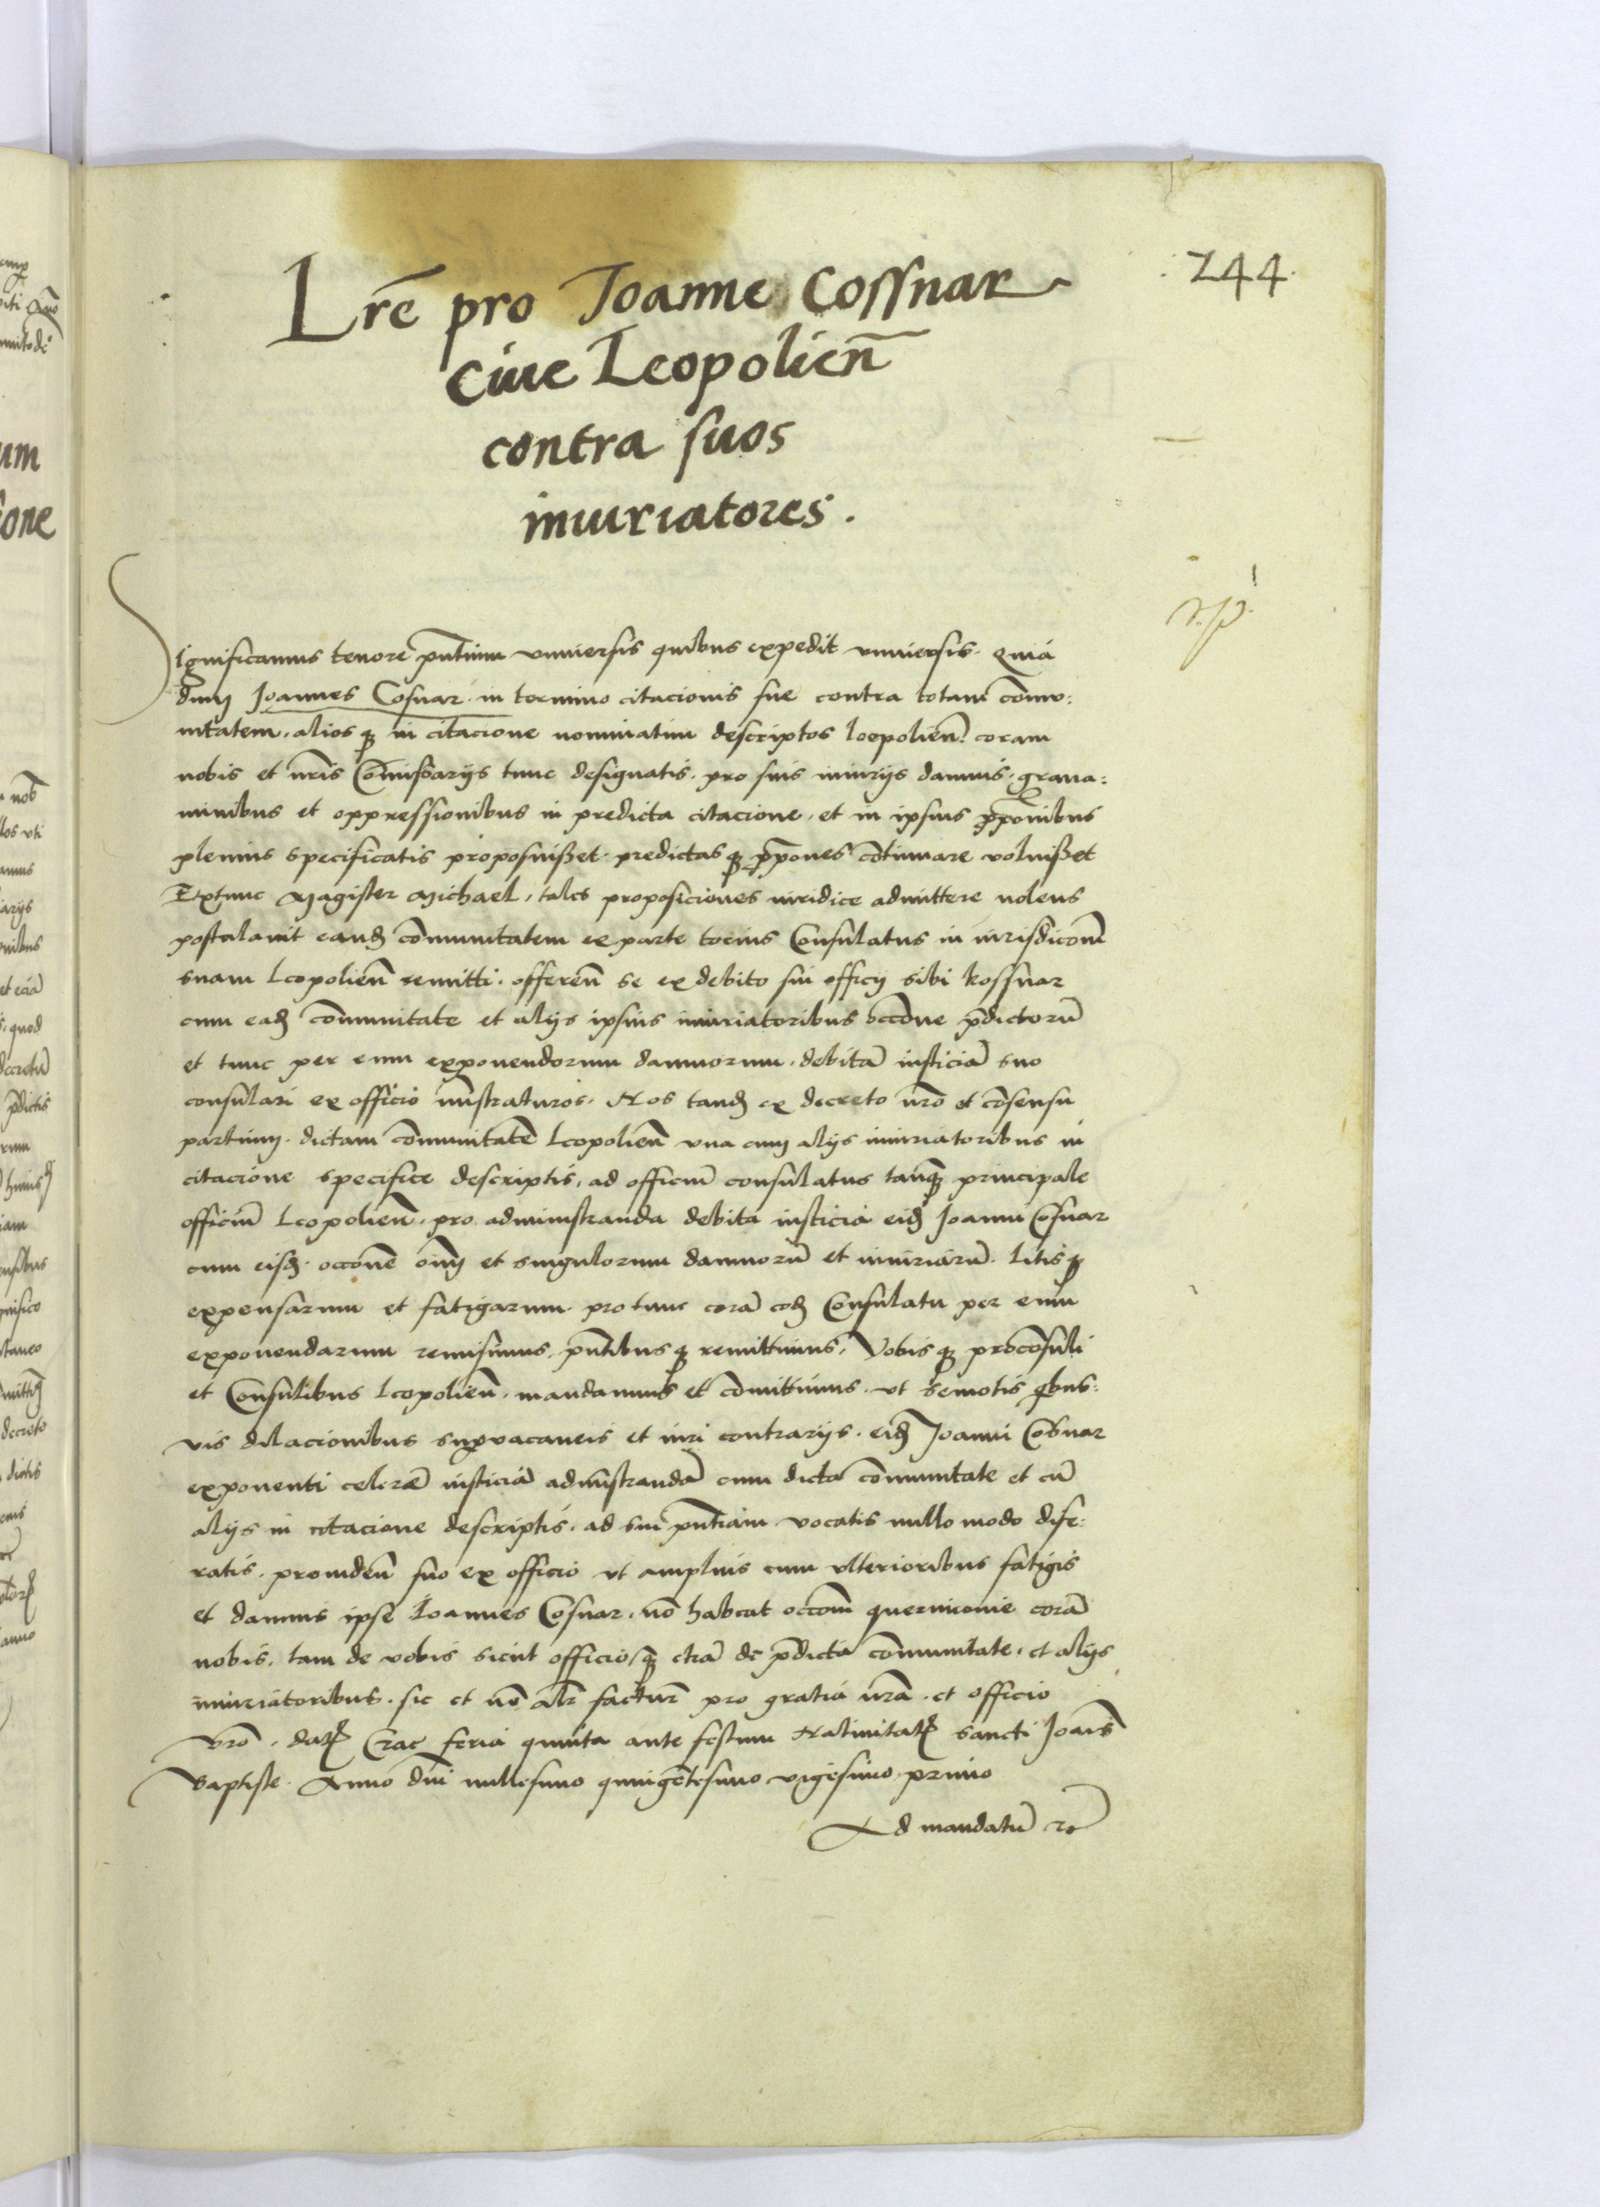 244.
Lr̄e pro Joanne Cossnar
Ciue Leopolien̄
contra suos
iniuriatores.
Significamus tenore pn̄tium vniuersis quibus expedit vniuersis. Quia
dum Joannes Cosnar. in termino citacionis sue contra totam com̄u:
nitatem, alios q̨ in citacione nominatim descriptos leopolien̄. coram
nobis et nr̄is Com̄issarijs tunc designatis. pro suis iniurijs damnis. graua:
minibus et oppressionibus in predicta citacione, et in ipsius p̱pōnibus
plenius specificatis proposuisset. predictas q̨ p̱pōnes cōtinuare voluisset
Extunc Magister Michael, tales proposiciones iuridice admittere nolens
postulauit eand̨ com̄unitatem ex parte tocius Consulatus in iurisdicōnem
suam Leopolien̄ remitti. offeren̄ se ex debito sui officij sibi Kossnar
cum ead̨ com̄unitate et alijs ipsius iniuriatoribus occōne p̄dictorū
et tunc per eum exponendorum damnorum, debitā iusticiā suo
consulari ex officio mīstraturos. Nos tand̨ ex decreto nr̄o et cōsensu
partium. dictam com̄unitatē Leopolien̄ vna cum alijs iniuriatoribus in
citacione specifice descriptis, ad officiū consulatus tanq̨ principale
officiū Leopolien̄, pro administranda debita iusticia eid̨ Joanni Cosnar
cum eisd̨. occōne om̄i et singulorum damnorū et iniuriarū. litis q̨
expensarum et fatigarum protunc corā eod̨ Consulatu per eum
exponendarum remisimus, pn̄tibus q̨ remittimus, Vobis q̨ procōsuli
et Consulibus Leopolien̄. mandamus et com̄ittimus. vt semotis q̨bus:
vis dilacionibus sup̱uacaneis et iuri contrarijs. eid̨ Joanni Cosnar
exponenti celerē iusticiā admīstrandā cum dicta com̄unitate et cū
alijs in citacione descriptis. ad sui pn̄tiam vocatis nullo modo dife:
ratis. prouiden̄ suo ex officio vt amplius cum vlterioribus fatigis
et damnis ipse Joannes Cosnar. nō habeat occōm querimonie corā
nobis, tam de vobis sicut officio, q̨ etiā de p̄dicta com̄unitate. et alijs
iniuriatoribus. sic et nō alr̄ facturi pro gratia nr̄a. et officio
vr̄o. dat̨ Crac feria quinta ante festum Natiuitat̨ sancti Joan̄is
Baptiste. Anno dn̄i millesimo quingētesimo vigesimo primo
Ad mandatū